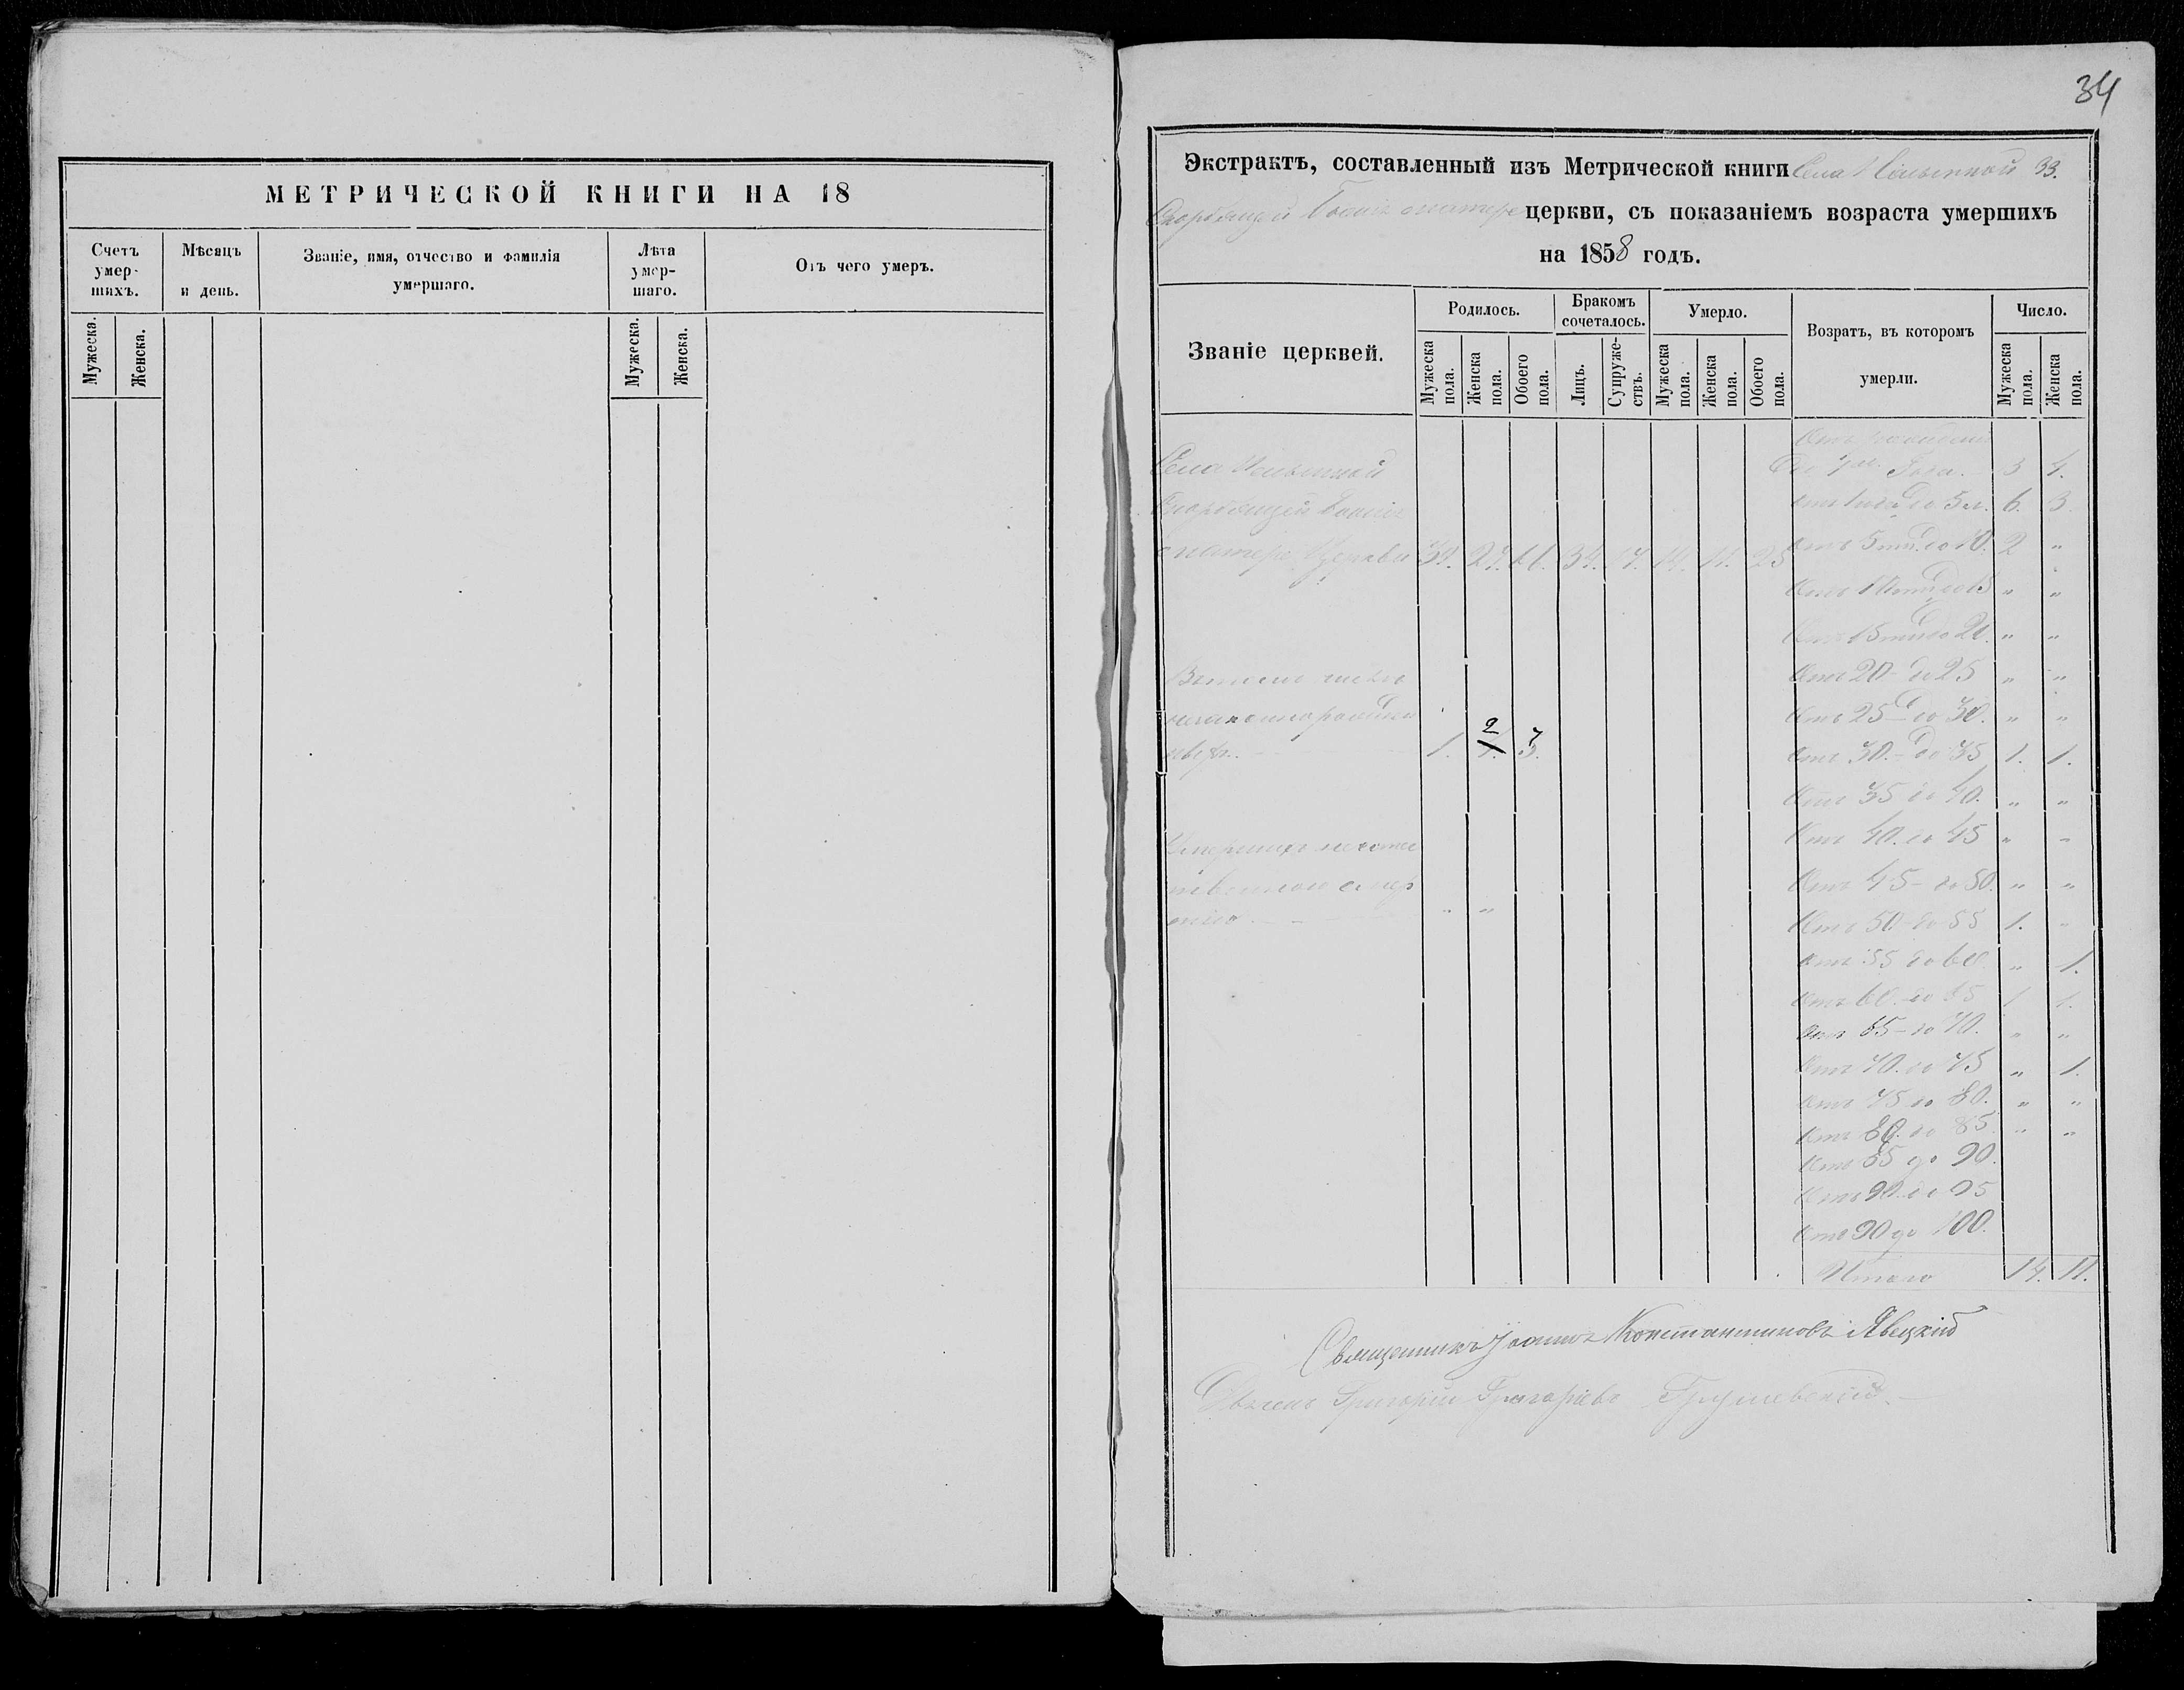 МЕТРИЧЕСКОЙ КНИГИ НА 18
Счетъ умер-шихъ.
Мѣсяцъ и день.
Званіе, имя, отчество и фамилія умершаго.
Лѣта умер-шаго.
Отъ чего умеръ.
Мужеска.
Женска.
Мужеска.
Женска.
34
Экстрактъ, составленный изъ Метрической книги Села 33.
Скорбящей Божіе матере церкви, съ показаніемъ возраста умершихъ
на 1858 годъ.
Званіе церквей.
Родилось.
Бракомъ сочеталось.
Умерло.
Возратъ, въ которомъ умерли.
Число.
Мужеска пола.
Женска пола.
Обоего пола.
Лицъ.
Супруже-ствъ.
Мужеска пола.
Женска пола.
Обоего пола.
Мужеска пола.
Женска пола.
Отъ рожденія
Села До 1го Года. 3 4.
Скорбящей Божіе отъ 1 года до 5 л. 6. 3
матере Церкви 34. 17. 14. 11. 25 отъ 5ти до 10. 2 "
Отъ 10ти до 15 " "
Отъ 15ти до 20. " "
Въ томъ числѣ Отъ 20 - до 25 " "
незаконнорожден Отъ 25 - до 30. " "
ныхъ. 1. 2 3. Отъ 30. - до 35 1. 1.
Отъ 35 до 40. " "
Умершихъ неесте Отъ 40. до 45 " "
ственною смер Отъ 45 - до 50. " "
тію " " Отъ 50 - до 55 1. "
Отъ 55 до 60 " 1.
Отъ 60. - до 65 1 1.
Отъ 65 - до 70. " "
Отъ 70. до 75 " 1.
Отъ 75 до 80. " "
Отъ 80. до 85 " "
Отъ 85 до 90.
Отъ 90. до 95
Отъ 90 до 100.
Итого 14. 11.
Священникъ Іоаннъ Константиновъ Явецкій
Григорій Григоріевъ